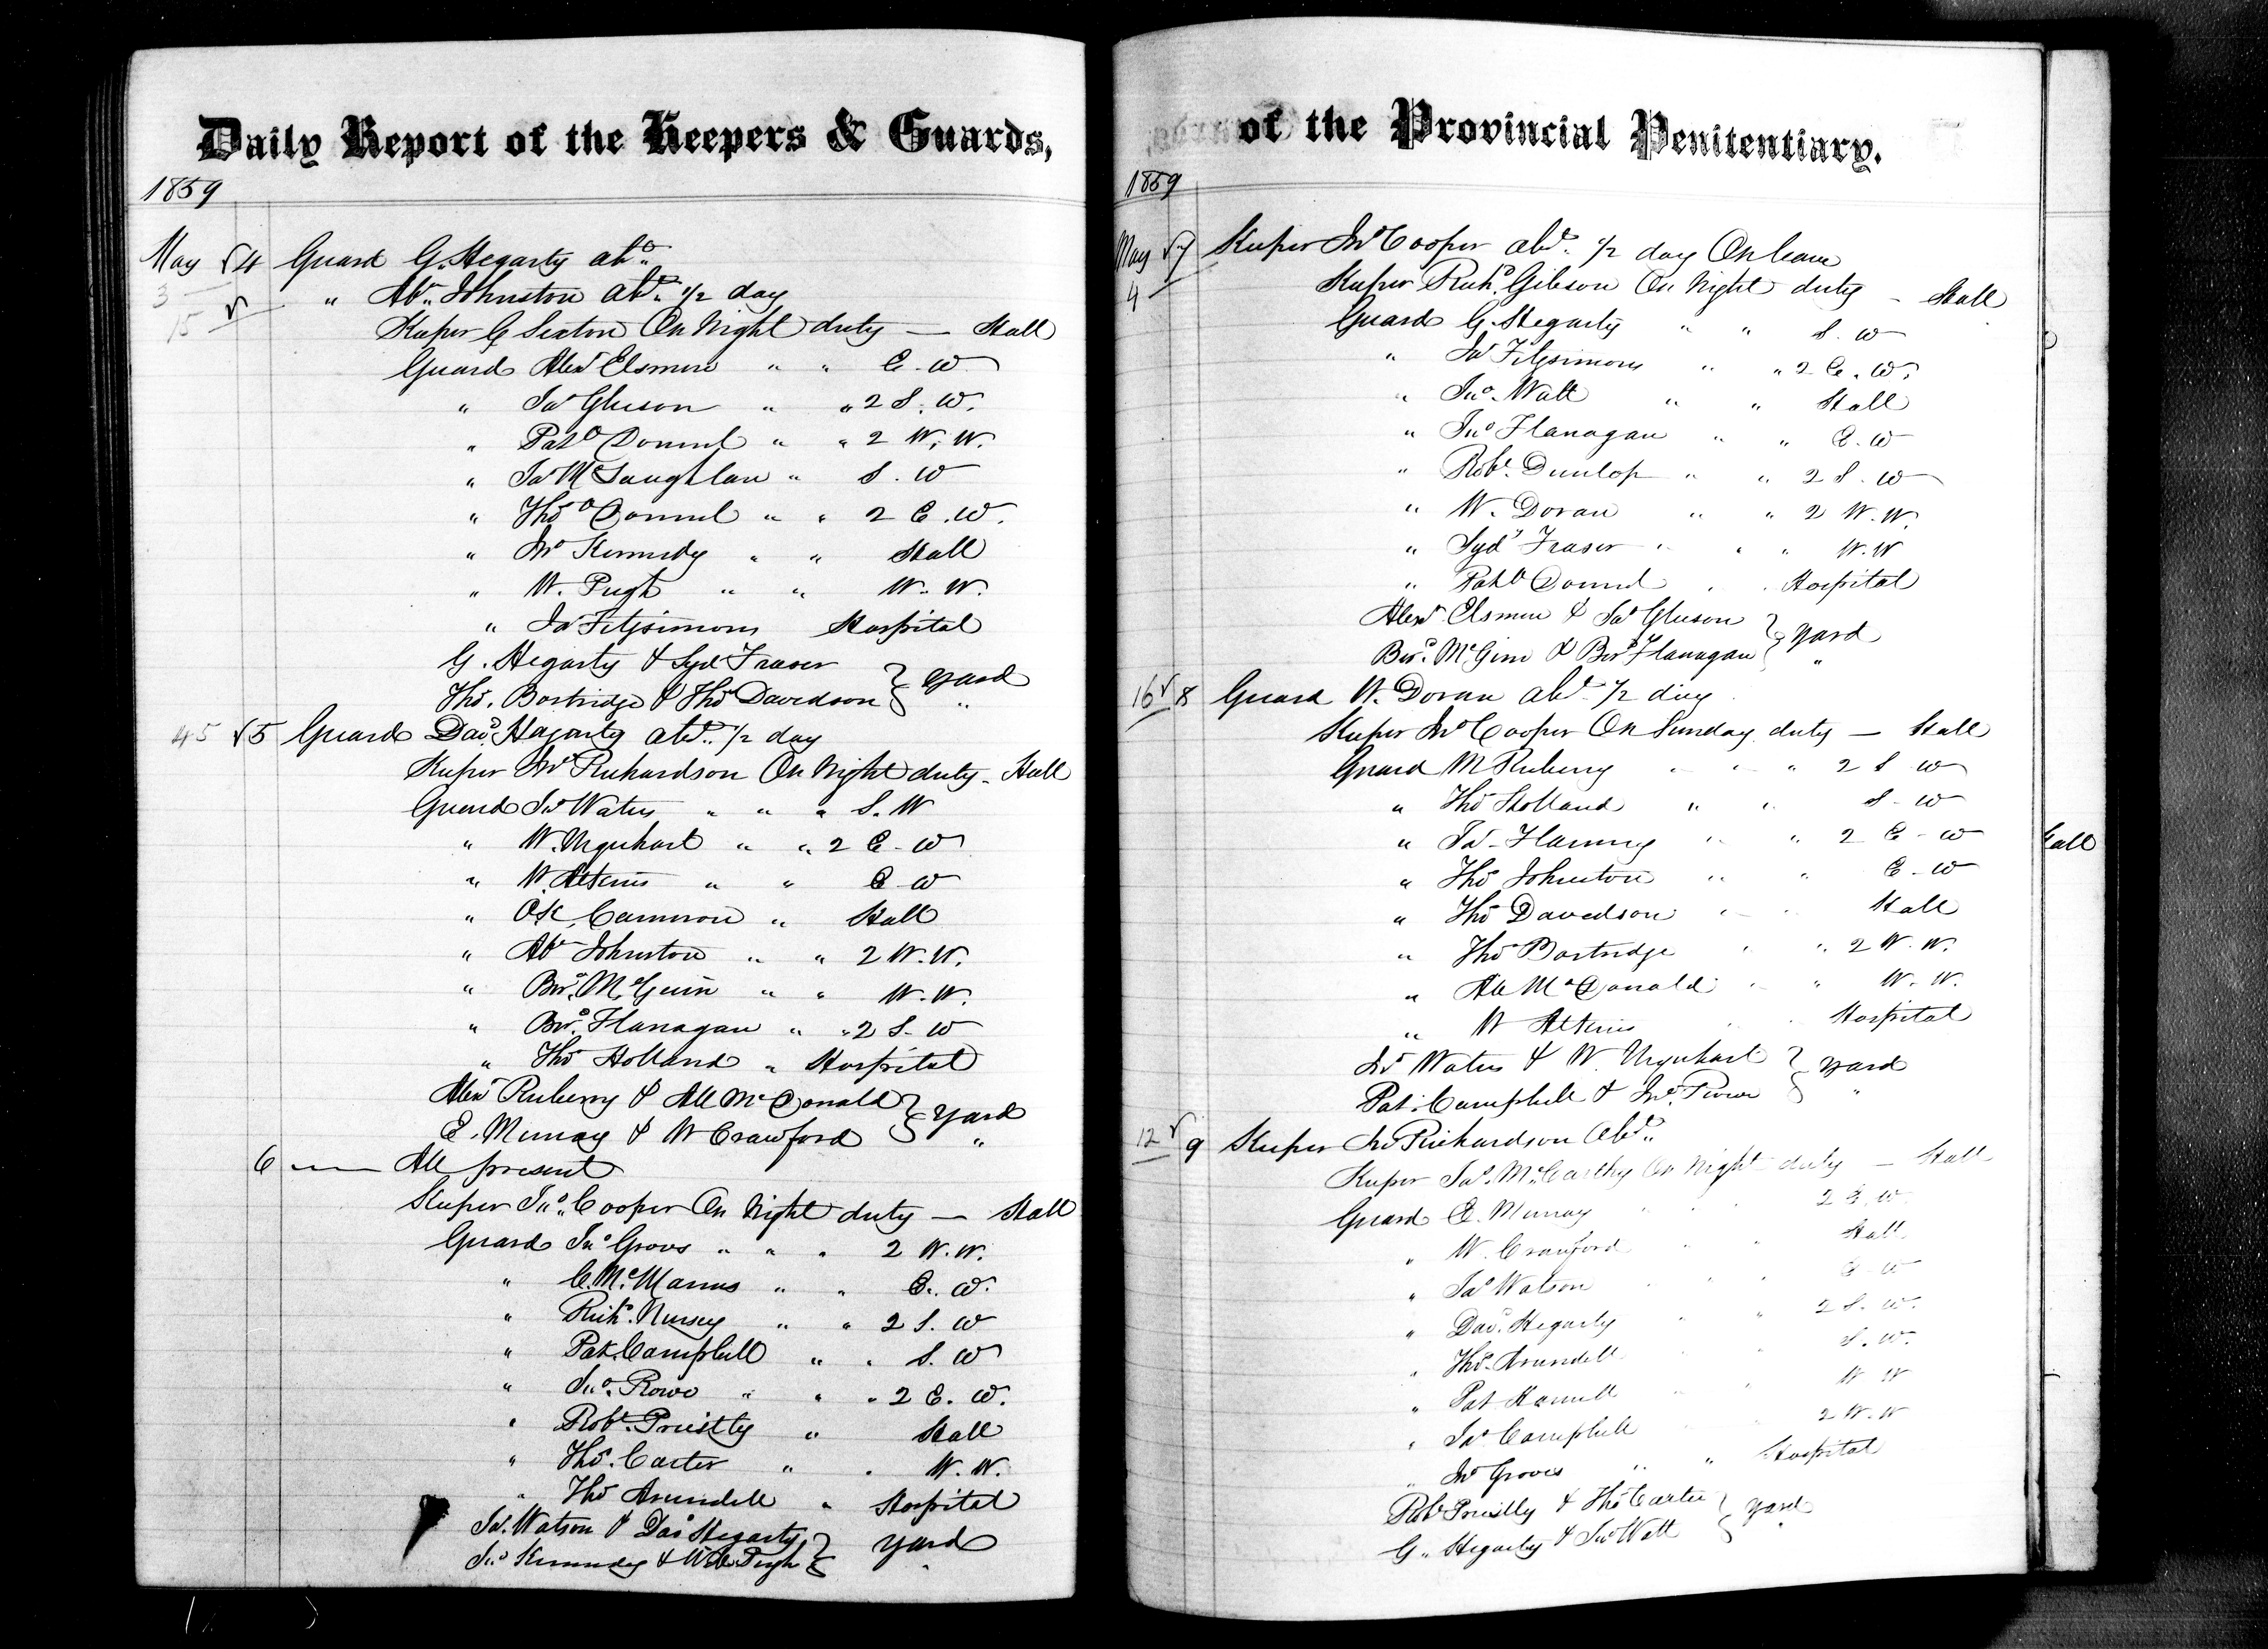 Daily Report of the Keepers & Guards,
1859
May 4 Guard G. Hegarty abt.
3 " Abm. Johnston abt. 1/2 day
15 Keeper C Sexton On Night duty — Hall
Guard Alexr Elsmere " " E. W
" Jas Gleeson " " 2 S. W.
" Pat O'Donnel " " 2 W. W.
" Jas McLaughlan " S. W
" Thos O'Donnel " " 2 E. W.
" Jno Kennedy " " Hall
" W. Pugh " " W. W.
" Jas Fitzsimons Hospital
G. Hegarty & Syd Fraser } Yard
Thos. Bostridge & Thos Davidson } "
45 5 Guard Davd. Hegarty abt. 1/2 day
Keeper Jno Richardson On Night duty - Hall
Guard Jno Waters " " " S. W
" W. Urquhart " " 2 E. W
" W. Atkins " " E W
" Cameron " Hall
" Abm Johnston " " 2 W. W.
" Brd. McGuin " " W. W.
" Brd. Flanagan " " 2 S. W
" Thos Holland " Hospital
Alexr Ruberry & All McDonald } Yard
E. Murray & W Crawford } "
6 — All present
Keeper Jno. Cooper On Night duty — Hall
Guard Jno Groves " " " 2 W. W.
" C. McManus " " E. W.
" Richd. Nursey " " 2 S. W
" Pat. Campbell " " S. W
" Jno. Rowe " " " 2 E. W.
" Robt. Priestly " Hall
" Thos. Carter " " W. W.
" Thos Arundell " Hospital
Jas. Watson & Dav Hegarty } Yard
Jno Kennedy & Wm Pugh } "
of the Provincial Penitentiary.
1859
May 7 Keeper Jno Cooper abt. 1/2 day On leave
4 Keeper Richd. Gibson On Night duty - Hall
Guard G. Hegarty " " S. W
" Jas Fitzsimons " " 2 E. W.
" Jno. Watt " " Hall
" Jno Flanagan " " E. W
" Robt. Dunlop " " 2 S. W
" W. Doran " " 2 W. W.
" Syd Fraser " " " W. W
" Pat O'Donnel " " Hospital
Alexr Elsmere & Jas Gleeson } Yard
Brd. McGinn & Brd Flanagan } "
16 8 Guard W. Doran abt. 1/2 day
Keeper Jno Cooper On Sunday duty — Hall
Guard M Ruberry " " " 2 S W
" Thos Holland " " S - W
" Jas Flaning " " 2 E - W
" Thos Johnston " " E - W
" Thos Davedson " " Hall
" Thos Bostridge " " 2 W. W.
" All McDonald " " W. W.
" W Atkins " " Hospital
Jno Waters & W. Urquhart } Yard
Pat. Campbell & Jno. Rowe } "
12 9 Keeper Jno Richardson Abt.
Keeper Jas. McCarthy On Night duty — Hall
Guard E. Murray " " 2 E. W.
" W. Crawford " " Hall
" Jas Watson " " E W
" Davd. Hegarty " " 2 S. W.
" Thos. Arundell " S. W.
" Pat Hamill " " W W
" Jas Campbell " 2 W. W
" Jno Groves " " Hospital
Robt Priestly & Thos Carter } Yard
G. Hegarty & Jno Watt } "
Hall